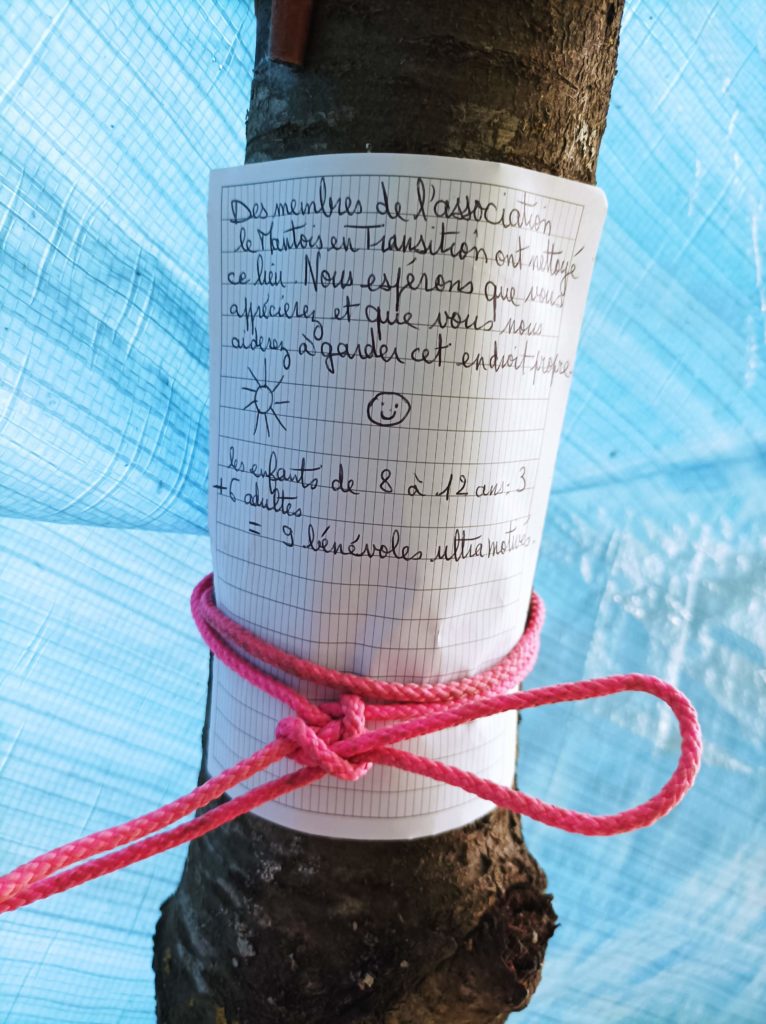 Des membres de l'association
le Mantois en Transition ont nettoyé
ce lieu. Nous espérons que vous
apprécierez et que vous nous
aiderez à garder cet endroit propre.
les enfants de 8 à 12 ans : 3
+ 6 adultes
= 9 bénévoles ultra motivés.